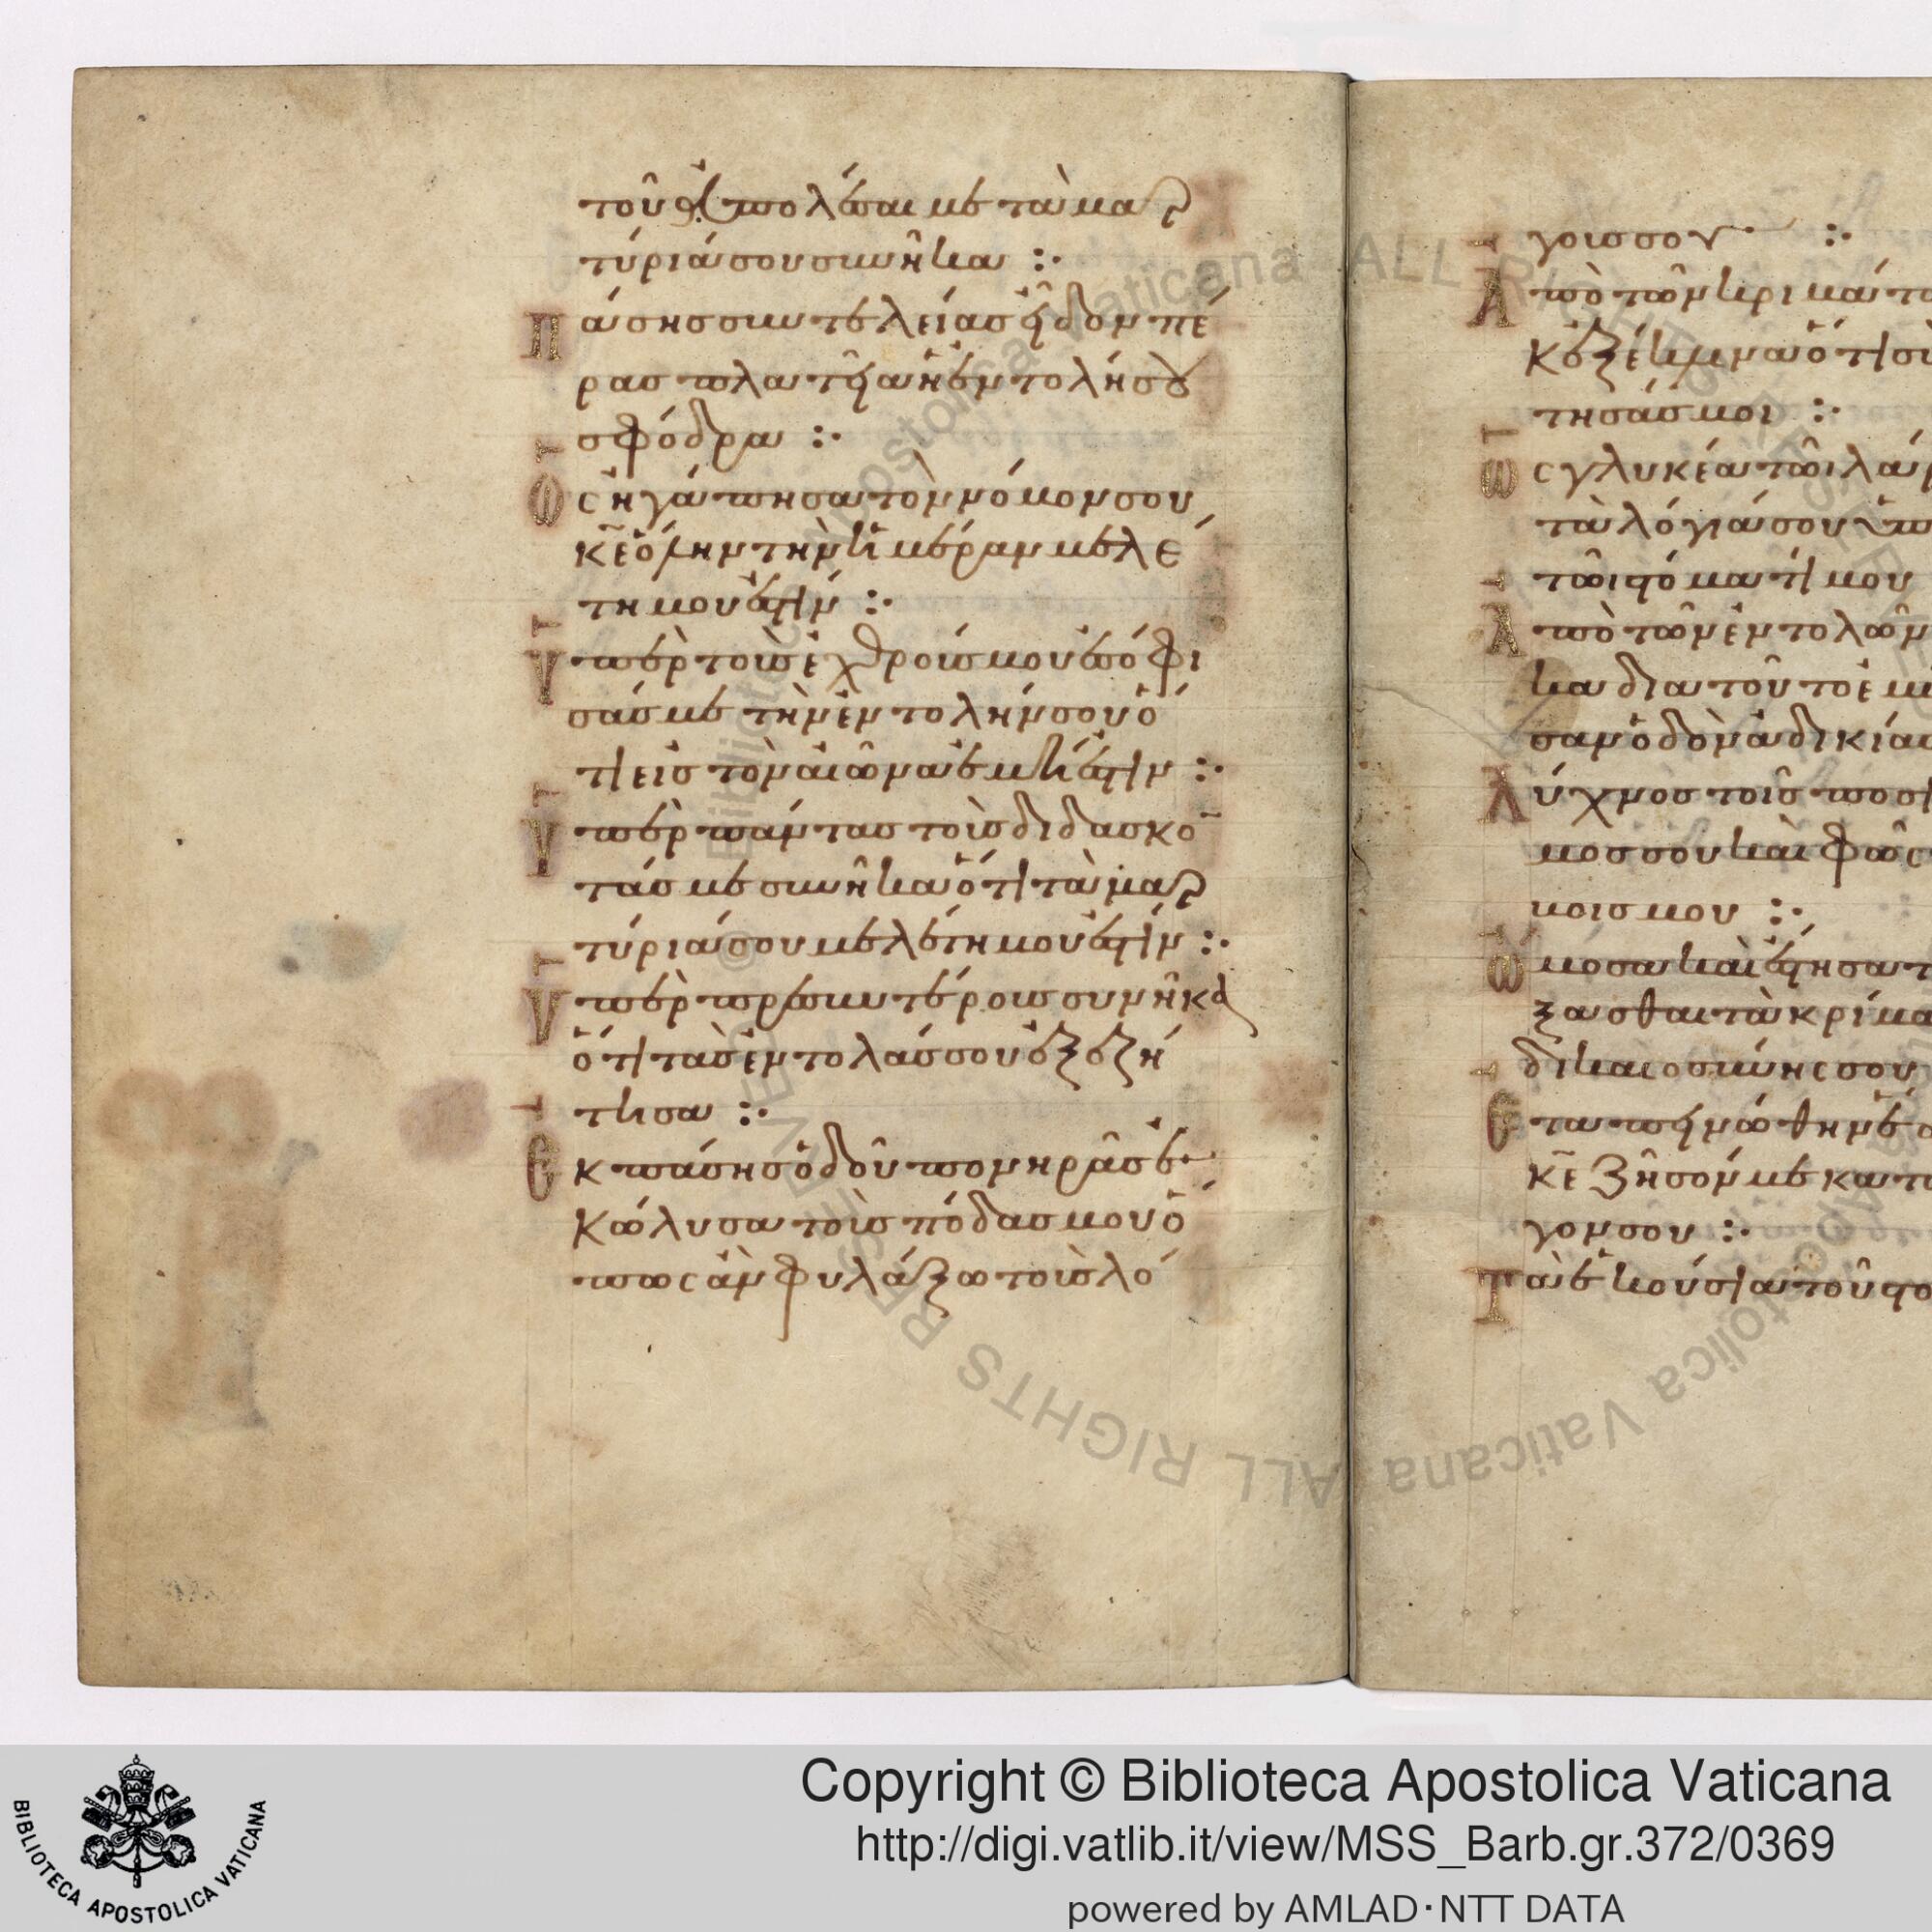 τοῦ ἀπολέσαι με τὰ μαρ
τύριά σου συνῆκα :·
Πάσης συντελείας εἶδον πέ
ρας πλατεῖα ἡ ἐντολή σου
σφόδρα :·
Ὡς ἠγάπησα τὸν νόμον σου
κε ὅλην τὴν ἡμέραν μελέ
τη μου ἐστίν :·
Ὑπὲρ τοὺς ἐχθρούς μου ἐσόφι
σάς με τὴν ἐντολήν σου ὅ
τι εἰς τὸν αἰῶνα ἐμή ἐστιν :·
Ὑπὲρ πάντας τοὺς διδάσκο
τάς με συνῆκα ὅτι τὰ μαρ
τύριά σου μελέτη μου ἐστίν :·
Ὑπὲρ πρεσβυτέρους συνῆκα
ὅτι τὰς ἐντολάς σου ἐξεζή
τησα :·
Ἐκ πάσης ὁδοῦ πονηρᾶς ἐ
κώλυσα τοὺς πόδας μου ὅ
πως ἂν φυλάξω τοὺς λό
γους σου :·
Ἀπὸ τῶν κριμάτω
κ ἐξέκλινα ὅτι σὺ
τησάς μοι :·
Ὡς γλυκέα τῶι λάρ
τὰ λόγιά σου ὑπ
τῶι στόματί μου
Ἀπὸ τῶν ἐντολῶν
κα διατοῦτο ἐμ
σα ὁδὸν ἀδικίας
Λύχνος τοῖς ποσὶ
μος σου καὶ φῶς
βοις μου :·
Ὤμοσα καὶ ἔστησα τ
ξασθαι τὰ κρίμα
δικαιοσύνης σου
Ἐταπεινώθην ἕ
κε ζῆσόν με κατὰ
γον σου :·
Τὰ ἑκούσια τοῦ στο
Copyright © Biblioteca Apostolica Vaticana
http://digi.vatlib.it/view/MSS_Barb.gr.372/0369
powered by AMLAD·NTT DATA
BIBLIOTECA APOSTOLICA VATICANA